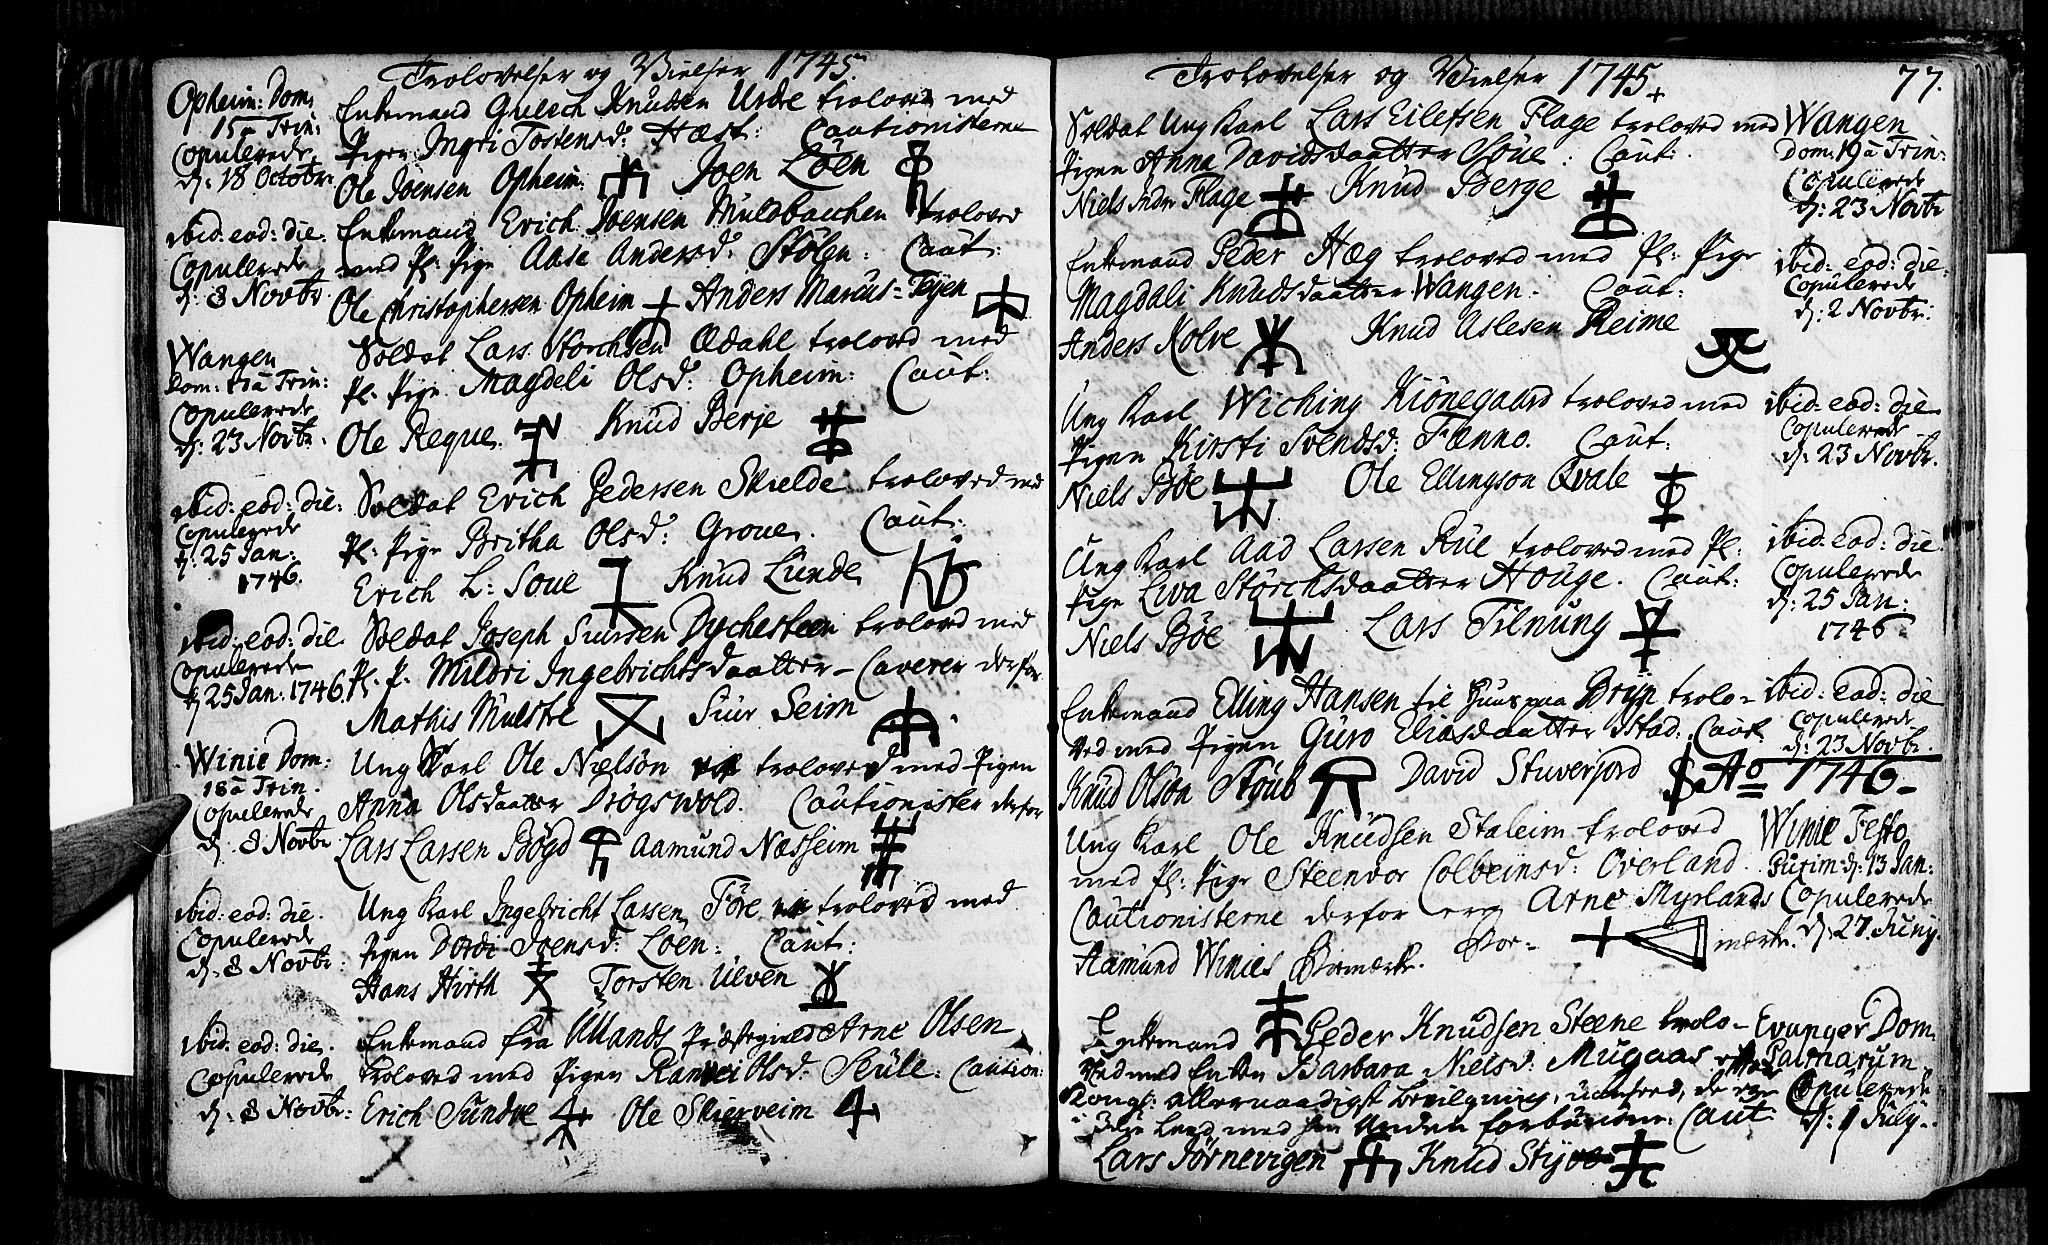 Trolovelser og Vielser 1745.
Opheim: Dom:
15 a Trin:
Copulerede
d: 18 Octobr:
Enkemand Gulech Knudsen Urde troloved med
Pigen Ingri Tostensd: Hæst: Cautionisterne
Ole Joensen Opheim: Joen Löen
ibid: eod: die.
Copulerede
d: 8 Novbr.
Enkemand Erich Joensen Muldbacchen troloved
med Pl: Pige Aase Andersd: Stölen: Caut:
Ole Christophersen Opheim Anders Marcus=Teyen
Wangen
Dom: 17 a Trin:
Copulerede
d: 23 Novbr.
Soldat Lars Storchsen Ædahl troloved med
Pl: Pige Magdeli Olsd: Opheim: Caut:
Ole Reque. Knud Berje
ibid: eod: die:
Copulerede
d: 25 Jan:
1746.
Soldat Erich Pedersen Skielde troloved med
Pl: Pige Britha Olsd: Groue. Caut:
Erich L: Soue Knud Lunde
ibid: eod: die
Copulerede
d 25 Jan: 1746.
Soldat Joseph Siursen Dychesteen troloved med
Pl: P: Mildri Ingebrichtsdaatter - Caverer derfor
Mathis Mulstre Siur Seim
Winie Dom:
18 a Trin.
Copulerede
d. 8 Novbr
Ung Karl Ole Nielsön troloved med Pigen
Anna Olsdaatter Drögswold. Cautionister derfor
Lars Larsen Bögd Aamund Næsheim
ibid: eod: die.
Copulerede
d: 8 Novbr:
Ung Karl Ingebricht Larsen Före troloved med
Pigen Dordi Joensd: Löen: Caut:
Hans Hirth Torsten Ulven
ibid: eod: die.
Copulerede
d: 8 Novbr:
Enkemand fra Ullands Præstegield Arne Olsen
troloved med Pigen Ranvei Olsd: Seülle: Caution:
Erich Sundve Ole Skierveim
Trolovelser og Vielser 1745. 77.
Soldat Ung Karl Lars Eilefsen Flage troloved med
Pigen Anna Davidsdaatter Söue: Caut:
Niels Flage Knud Berge
Wangen
Dom: 19 a Trin:
Copulerede
d: 23 Novbr
Enkemand Peder Hæg troloved med Pl: Pige
Magdali Knudsdaatter Wangen: Caut:
Anders Kolve Knud Aslesen Reime
ibid: eod: die:
Copulerede
d: 2 Novbr:
Ung Karl Wiching Kiönegaard troloved med
Pigen Kirsti Svendsd: Fænno. Caut:
Niels Böe Ole Ellingson Qvale
ibid: eod: die
Copulerede
d: 23 Novbr.
Ung Karl Aad Larsen Rüe troloved med Pl:
Pige Liva Störchsdaatter Houge. Caut:
Niels Böe Lars Tilnung
ibid: eod: die.
Copulerede
d: 25 Jan:
1746.
Enkemand Elling Hansen til Huus paa Bryn trolo-
ved med Pigen Guro Eliasdaatter Istad: Caut:
Knud Olsön Stöub David Stuverjord
ibid: eod: die
Copulerede
d: 23 Novbr.
Ao 1746-
Ung Karl Ole Knudsen Staleim troloved
med Pl: Pige Steenvor Colbeinsd: Overland.
Cautionisterne derfor ere Arne Myrlands
Aamund Winies Bomærke. Bo- mærke.
Winie Festo
Purim: d: 13 Jan:
Copulerede
d: 27. Juny.
Enkemand Peder Knudsen Steene trolo-
ved med Enken Barbara Nielsd: Mugaas
Kongl: allernaadigst bevilgning, uanseed, de ere
i 3die Leed med hin Anden forbundne: Caut
Lars Jörnevigen Knud Styve
Evanger Dom.
Palmarum
Copulerede
d: 1 July.